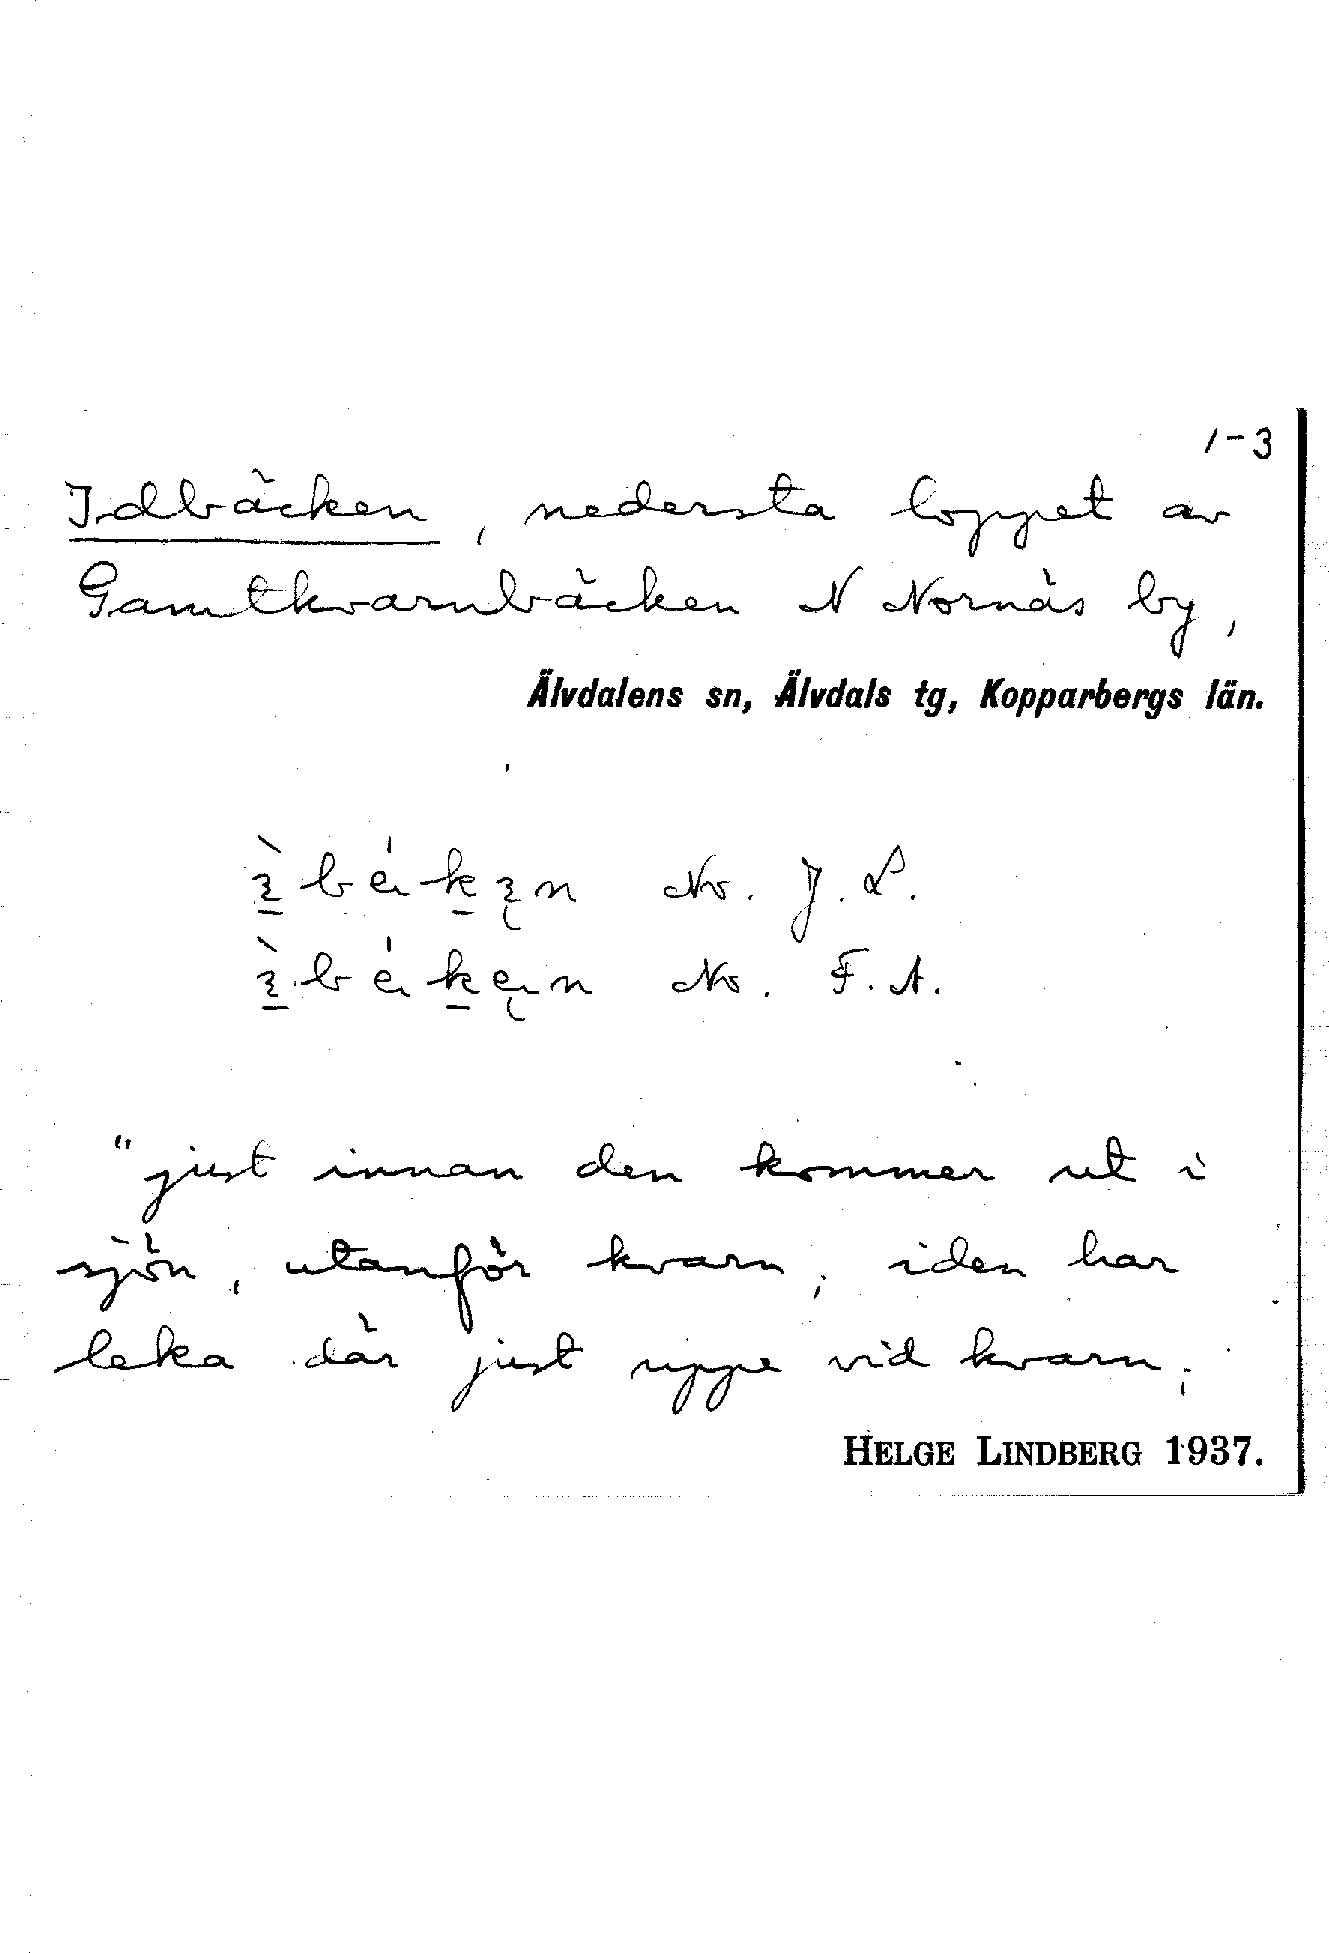 1-3
Idbäcken, nedersta loppet av
Gamtkvarnbäcken N Nornäs by,
Älvdalens sn, Älvdals tg, Kopparbergs län.
No. J. L.
No. F. A.
"just innan den kommer ut i
sjön, utanför kvarn; iden har
leka där just uppe vid kvarn;
HELGE LINDBERG 1937.